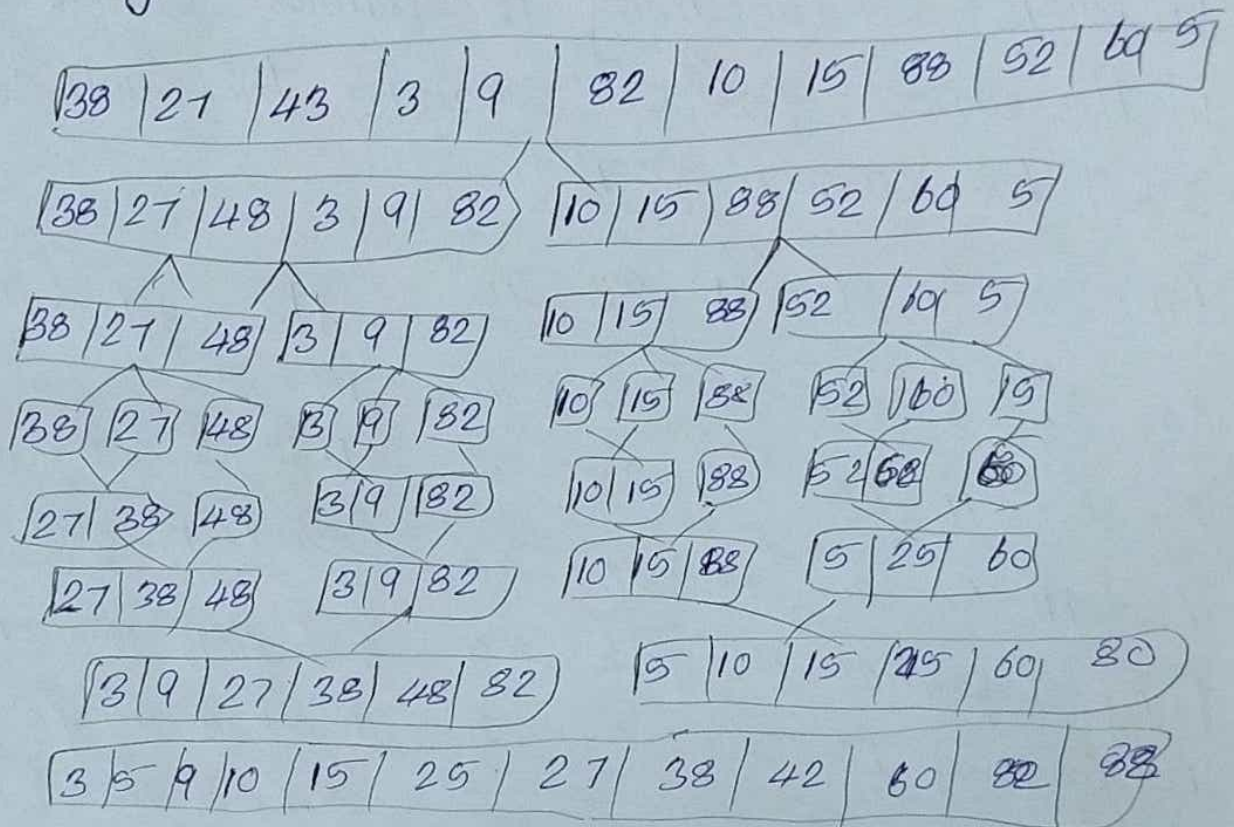 38 27 43 3 9 82 10 15 88 52 60 5
38 27 48 3 9 82 10 15 88 52 60 5
38 27 48 3 9 82 10 15 88 52 60 5
38 27 48 3 9 82 10 15 88 52 60 5
27 38 48 3 9 82 10 15 88 52
27 38 48 3 9 82 10 15 88 5 25 60
3 9 27 38 48 82 5 10 15 25 60 80
3 5 9 10 15 25 27 38 42 60 82 88